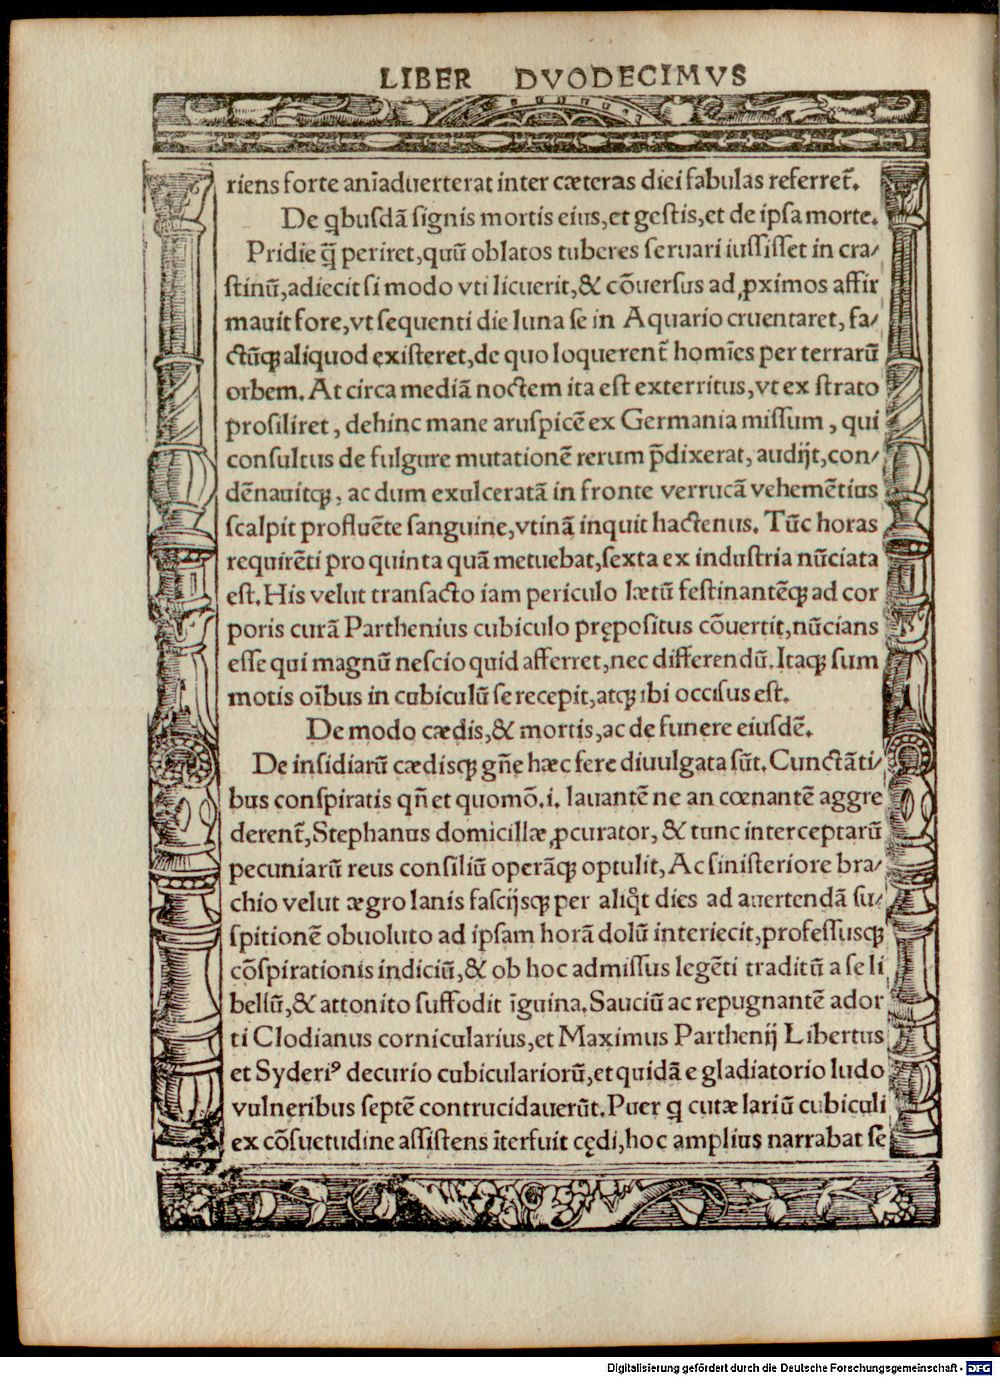 LIBER DVODECIMVS
riens forte anīaduerterat inter cæteras diei fabulas referret᷑.
De qbusdā signis mortis eius,et gestis,et de ipsa morte.
Pridie q̄ periret,quū oblatos tuberes seruari iussisset in cra/
stinū,adiecit si modo vti licuerit,& cōuersus ad ꝓximos affir
mauit fore,vt sequenti die luna se in Aquario cruentaret, fa/
ctūqꝫ aliquod existeret,de quo loquerent᷑ homīes per terrarū
orbem. At circa mediā noctem ita est exterritus,vt ex strato
prosiliret, dehinc mane aruspicē ex Germania missum, qui
consultus de fulgure mutationē rerum p̄dixerat, audijt,con/
dēnauitqꝫ, ac dum exulceratā in fronte verrucā vehemētius
scalpit profluēte sanguine,vtinā inquit hactenus. Tūc horas
requirēti pro quinta quā metuebat,sexta ex industria nūciata
est. His velut transacto iam periculo lætū festinantēqꝫ ad cor
poris curā Parthenius cubiculo prępositus cōuertit,nūcians
esse qui magnū nescio quid afferret,nec differendū. Itaqꝫ sum
motis oībus in cubiculū se recepit,atqꝫ ibi occisus est.
De modo cædis,& mortis,ac de funere eiusdē.
De insidiarū cædisqꝫ gn̄e hæc fere diuulgata sūt. Cunctāti/
bus conspiratis qn̄ et quomō.i. lauantē ne an cœnantē aggre
derent᷑,Stephanus domicillæ ꝓcurator, & tunc interceptarū
pecuniarū reus consiliū operāqꝫ optulit, Ac sinisteriore bra/
chio velut ægro lanis fascijsqꝫ per aliq̊t dies ad auertendā su/
spitionē obuoluto ad ipsam horā dolū interiecit,professusqꝫ
cōspirationis indiciū,& ob hoc admissus legēti traditū a se li
bellū,& attonito suffodit īguina. Sauciū ac repugnantē ador
ti Clodianus cornicularius,et Maximus Parthenij Libertus
et Syderiꝰ decurio cubiculariorū,et quidā e gladiatorio ludo
vulneribus septē contrucidauerūt. Puer q cutæ lariū cubiculi
ex cōsuetudine assistens īterfuit cędi,hoc amplius narrabat se
Digitalisierung gefördert durch die Deutsche Forschungsgemeinschaft - DFG